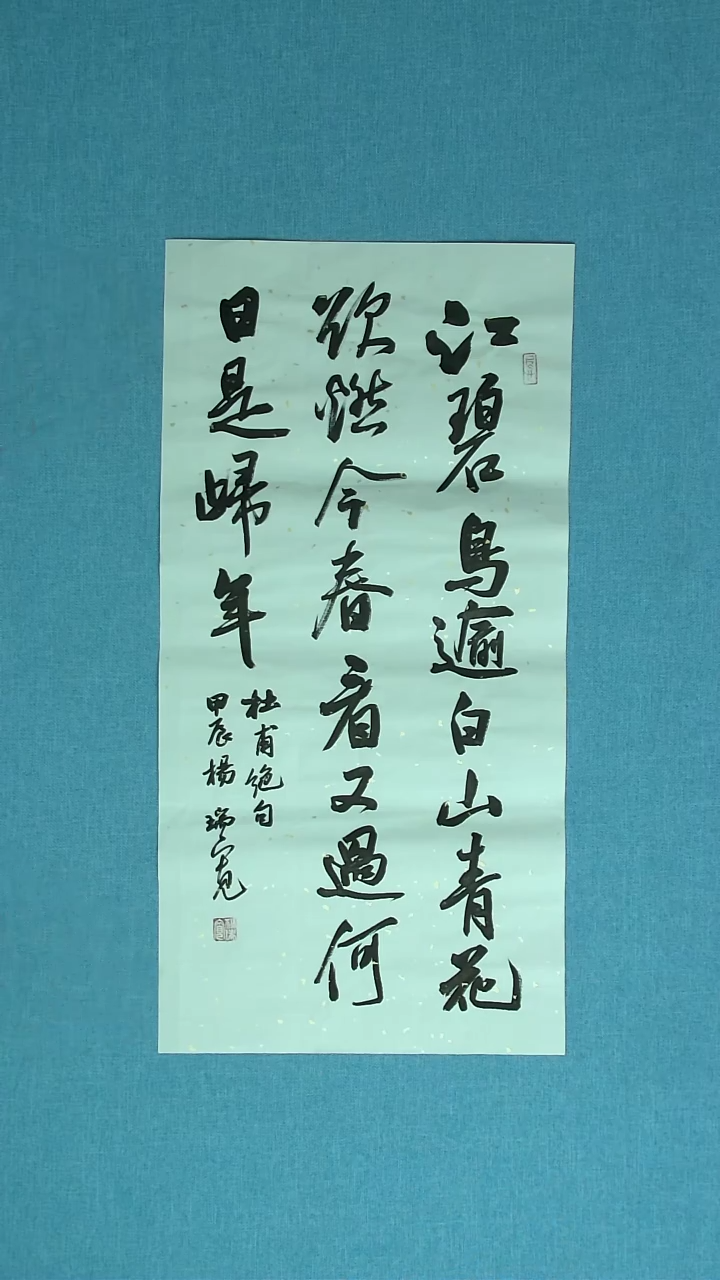 江碧鸟逾白山青花
欲燃今春看又過何
日是歸年
杜甫绝句
甲辰楊瑞寬